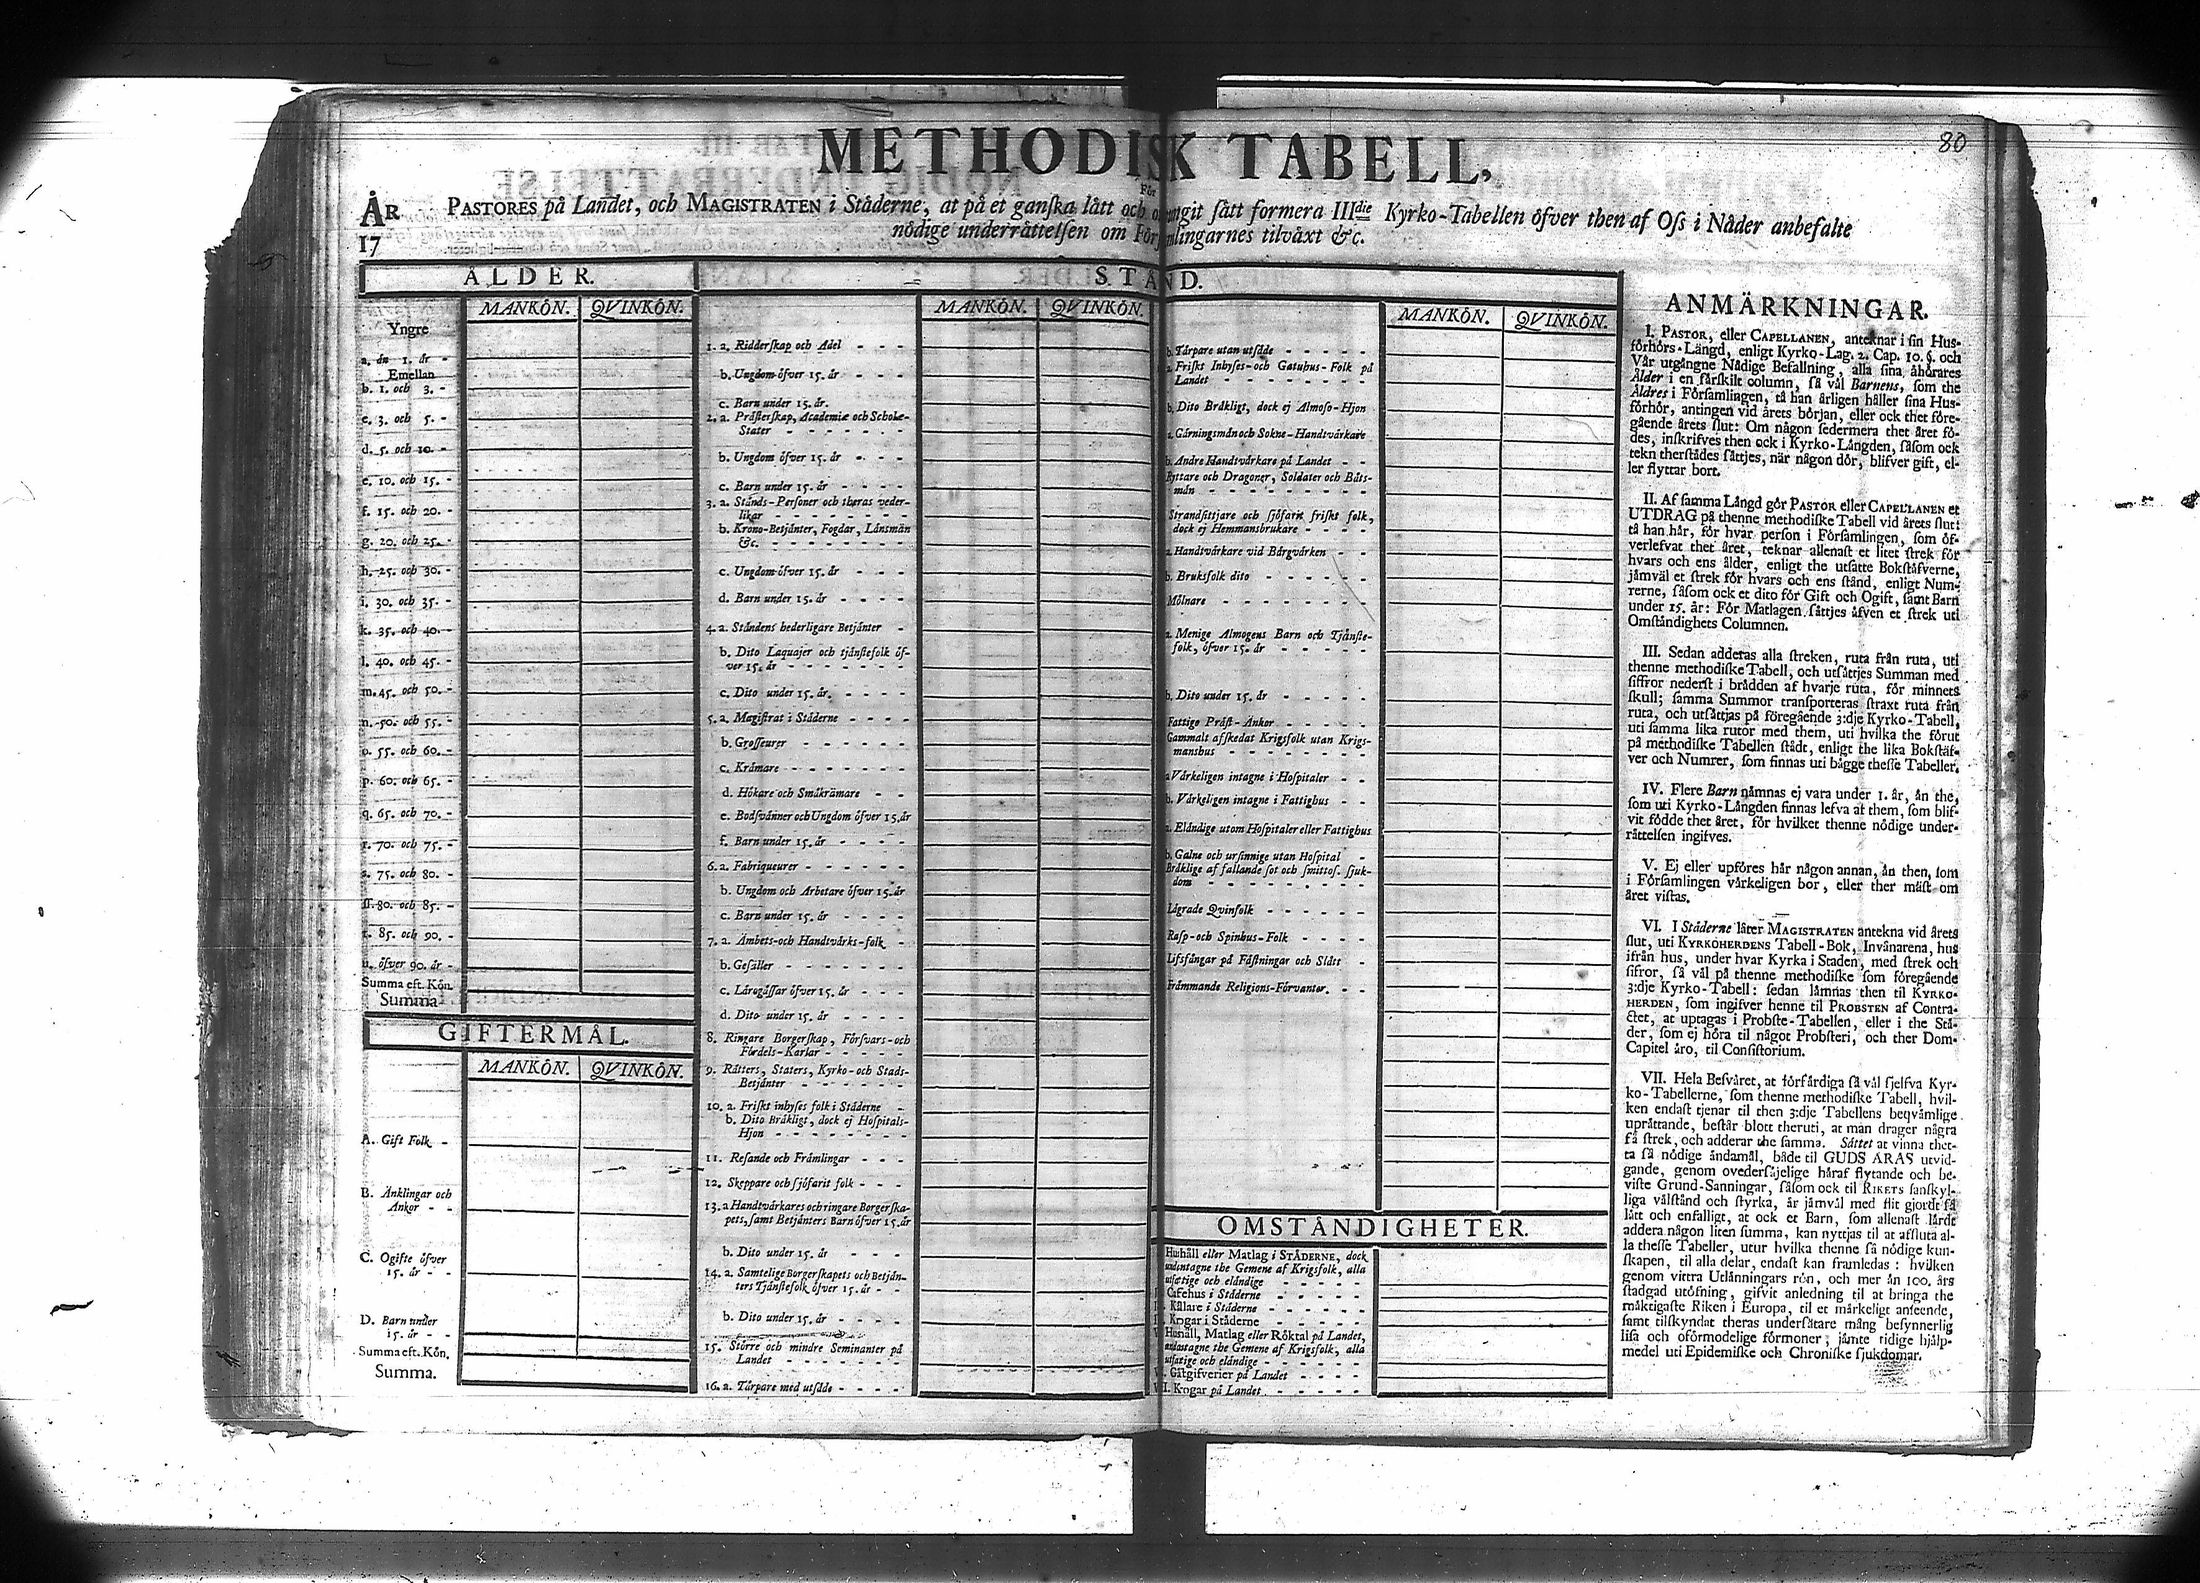 80
METHODISK TABELL,
För
ÅR
17
PASTORES på Landet, och MAGISTRATEN i Städerne, at på et ganska lätt och otvungit sätt formera IIIdie Kyrko-Tabellen öfver then af Oss i Nåder anbefalte
nödige underrättelsen om Församlingarnes tilväxt &c.
ÅLDER.
MANKÖN. QVINKÖN.
Yngre
a. än 1. år -
Emellan
b. 1. och 3. -
c. 3. och 5. -
d. 5. och 10. -
e. 10. och 15. -
f. 15. och 20. -
g. 20. och 25. -
h. 25. och 30. -
i. 30. och 35. -
k. 35. och 40. -
l. 40. och 45. -
m. 45. och 50. -
n. 50. och 55. -
o. 55. och 60. -
p. 60. och 65. -
q. 65. och 70. -
r. 70. och 75. -
s. 75. och 80. -
ſſ. 80. och 85. -
t. 85. och 90. -
u. öfver 90. år -
Summa eft. Kön.
Summa
GIFTERMÅL.
MANKÖN. QVINKÖN.
A. Gift Folk -
B. Änklingar och
Änkor - -
C. Ogifte öfver
15. år - -
D. Barn under
15. år - -
Summa eft. Kön.
Summa.
STÅND.
MANKÖN. QVINKÖN.
1. a. Ridderskap och Adel - - -
b. Ungdom öfver 15. år - - -
c. Barn under 15. år.
2. a. Prästerskap, Academiæ och Schole-
Stater - - - - - -
b. Ungdom öfver 15. år - - -
c. Barn under 15. år - - - -
3. a. Stånds-Personer och theras veder-
likar - - - - - - -
b. Krono-Betjänter, Fogdar, Länsmän
&c. - - - - - - -
c. Ungdom öfver 15. år - - -
d. Barn under 15. år - - - -
4. a. Ståndens hederligare Betjänter -
b. Dito Laquajer och tjänstefolk öf-
ver 15. år - - - - - -
c. Dito under 15. år. - - - -
5. a. Magistrat i Städerne - - - -
b. Grosseurer - - - - - -
c. Krämare - - - - - - -
d. Hökare och Småkrämare - -
e. Bodsvänner och Ungdom öfver 15. år
f. Barn under 15. år - - - -
6. a. Fabriqueurer - - - - - -
b. Ungdom och Arbetare öfver 15. år
c. Barn under 15. år - - - -
7. a. Ämbets-och Handtvärks-folk -
b. Gesäller - - - - - - -
c. Lärogåssar öfver 15. år - - -
d. Dito under 15. år - - - -
8. Ringare Borgerskap, Försvars-och
Fördels-Karlar - - - - -
9. Rätters, Staters, Kyrko-och Stads-
Betjänter - - - - - -
10. a. Friskt inhyses folk i Städerne -
b. Dito Bräkligt, dock ej Hospitals-
Hjon - - - - - - -
11. Resande och Främlingar - - -
12. Skeppare och sjöfarit folk - - -
13. a Handtvärkares och ringare Borgerska-
pets, samt Betjänters Barn öfver 15. år
b. Dito under 15. år - - -
14. a. Samtelige Borgerskapets och Betjän-
ters Tjänstefolk öfver 15. år - -
b. Dito under 15. år - - - -
15. Större och mindre Seminanter på
Landet - - - - - - -
16. a. Tårpare med utsäde - - - -
MANKÖN. QVINKÖN.
b. Tårpare utan utsäde - - - - -
a. Friskt Inhyses-och Gatuhus-Folk på
Landet - - - - - - - -
b. Dito Bräkligt, dock ej Almoso-Hjon
a. Gärningsmän och Sokne-Handtvärkare
b. Andre Handtvärkare på Landet - -
Ryttare och Dragoner, Soldater och Båts-
män - - - - - - - -
Strandsittjare och sjöfarit friskt folk,
dock ej Hemmansbrukare - - - -
a. Handtvärkare vid Bärgvärken - -
b. Bruksfolk dito - - - - - -
Mölnare - - - - - - - -
a. Menige Almogens Barn och Tjänste-
folk, öfver 15. år - - - - -
b. Dito under 15. år - - - - -
Fattige Präst-Änkor - - - - -
Gammalt afskedat Krigsfolk utan Krigs-
manshus - - - - - - - -
a. Värkeligen intagne i Hospitaler - -
b. Värkeligen intagne i Fattighus - -
a. Eländige utom Hospitaler eller Fattighus
b. Galne och ursinnige utan Hospital -
Bräklige af fallande sot och smittos. sjuk-
dom - - - - - - - -
Lägrade Qvinfolk - - - - - -
Rasp-och Spinhus-Folk - - - -
Lifsfångar på Fästningar och Slått -
Främmande Religions-Förvanter. - -
OMSTÄNDIGHETER.
Hushåll eller Matlag i STÄDERNE, dock
undantagne the Gemene af Krigsfolk, alla
utfattige och eländige - - - - -
Cafehus i Städerne - - - - -
Källare i Städerne - - - - -
Krogar i Städerne - - - - -
Hushåll, Matlag eller Röktal på Landet,
undantagne the Gemene af Krigsfolk, alla
utfattige och eländige - - - - -
Gåtgifverier på Landet - - - -
Krogar på Landet - - - - -
ANMÄRKNINGAR.
I. PASTOR, eller CAPELLANEN, anteknar i sin Hus-
förhörs-Längd, enligt Kyrko-Lag. 2. Cap. 10. §. och
Vår utgångne Nådige Befallning, alla sina åhörares
Ålder i en särskilt column, så väl Barnens, som the
Äldres i Församlingen, tå han årligen håller sina Hus-
förhör, antingen vid årets början, eller ock thet före-
gående årets slut: Om någon sedermera thet året fö-
des, inskrifves then ock i Kyrko-Längden, såsom ock
tekn therstädes sättjes, när någon dör, blifver gift, el-
ler flyttar bort.
II. Af samma Längd gör PASTOR eller CAPELLANEN et
UTDRAG på thenne methodiske Tabell vid årets slut:
tå han här, för hvar person i Församlingen, som öf-
verlefvat thet året, teknar allenast et litet strek för
hvars och ens ålder, enligt the utsatte Bokstäfverne,
jämväl et strek för hvars och ens stånd, enligt Num-
rerne, såsom ock et dito för Gift och Ogift, samt Barn
under 15. år: För Matlagen sättjes äfven et strek uti
Omständighets Columnen.
III. Sedan adderas alla streken, ruta från ruta, uti
thenne methodiske Tabell, och utsättjes Summan med
siffror nederst i brädden af hvarje ruta, för minnets
skull; samma Summor transporteras straxt ruta från
ruta, och utsättjas på föregående 3:dje Kyrko-Tabell,
uti samma lika rutor med them, uti hvilka the förut
på methodiske Tabellen städt, enligt the lika Bokstäf-
ver och Numrer, som finnas uti bägge thesse Tabeller.
IV. Flere Barn nämnas ej vara under 1. år, än the,
som uti Kyrko-Längden finnas lefva af them, som blif-
vit födde thet året, för hvilket thenne nödige under-
rättelsen ingifves.
V. Ej eller upföres här någon annan, än then, som
i Församlingen värkeligen bor, eller ther mäst om
året vistas.
VI. I Städerne låter MAGISTRATEN antekna vid årets
slut, uti KYRKOHERDENS Tabell-Bok, Invånarena, hus
ifrån hus, under hvar Kyrka i Staden, med strek och
sifror, så väl på thenne methodiske som föregående
3:dje Kyrko-Tabell: sedan lämnas then til KYRKO-
HERDEN, som ingifver henne til PROBSTEN af Contra-
ctet, at uptagas i Probste-Tabellen, eller i the Stä-
der, som ej höra til något Probsteri, och ther Dom-
Capitel äro, til Consistorium.
VII. Hela Besväret, at förfärdiga så väl sjelfva Kyr-
ko-Tabellerne, som thenne methodiske Tabell, hvil-
ken endast tjenar til then 3:dje Tabellens beqvämlige
uprättande, består blott theruti, at man drager några
få strek, och adderar the samma. Sättet at vinna thet-
ta så nödige ändamål, både til GUDS ÄRAS utvid-
gande, genom ovedersäjelige häraf flytande och be-
viste Grund-Sanningar, såsom ock til RIKETS sanskyl-
liga välstånd och styrka, är jämväl med flit gjordt så
lätt och enfalligt, at ock et Barn, som allenast lärdt
addera någon liten summa, kan nyttjas til at afsluta al-
la thesse Tabeller, utur hvilka thenne så nödige kun-
skapen, til alla delar, endast kan framledas: hvilken
genom vittra Utlänningars rön, och mer än 100. års
stadgad utöfning, gifvit anledning til at bringa the
mäktigaste Riken i Europa, til et märkeligt anseende,
samt tilskyndat theras undersåtare mång besynnerlig
lisa och oförmodelige förmoner, jämte tidige hjälp-
medel uti Epidemiske och Chroniske sjukdomar.